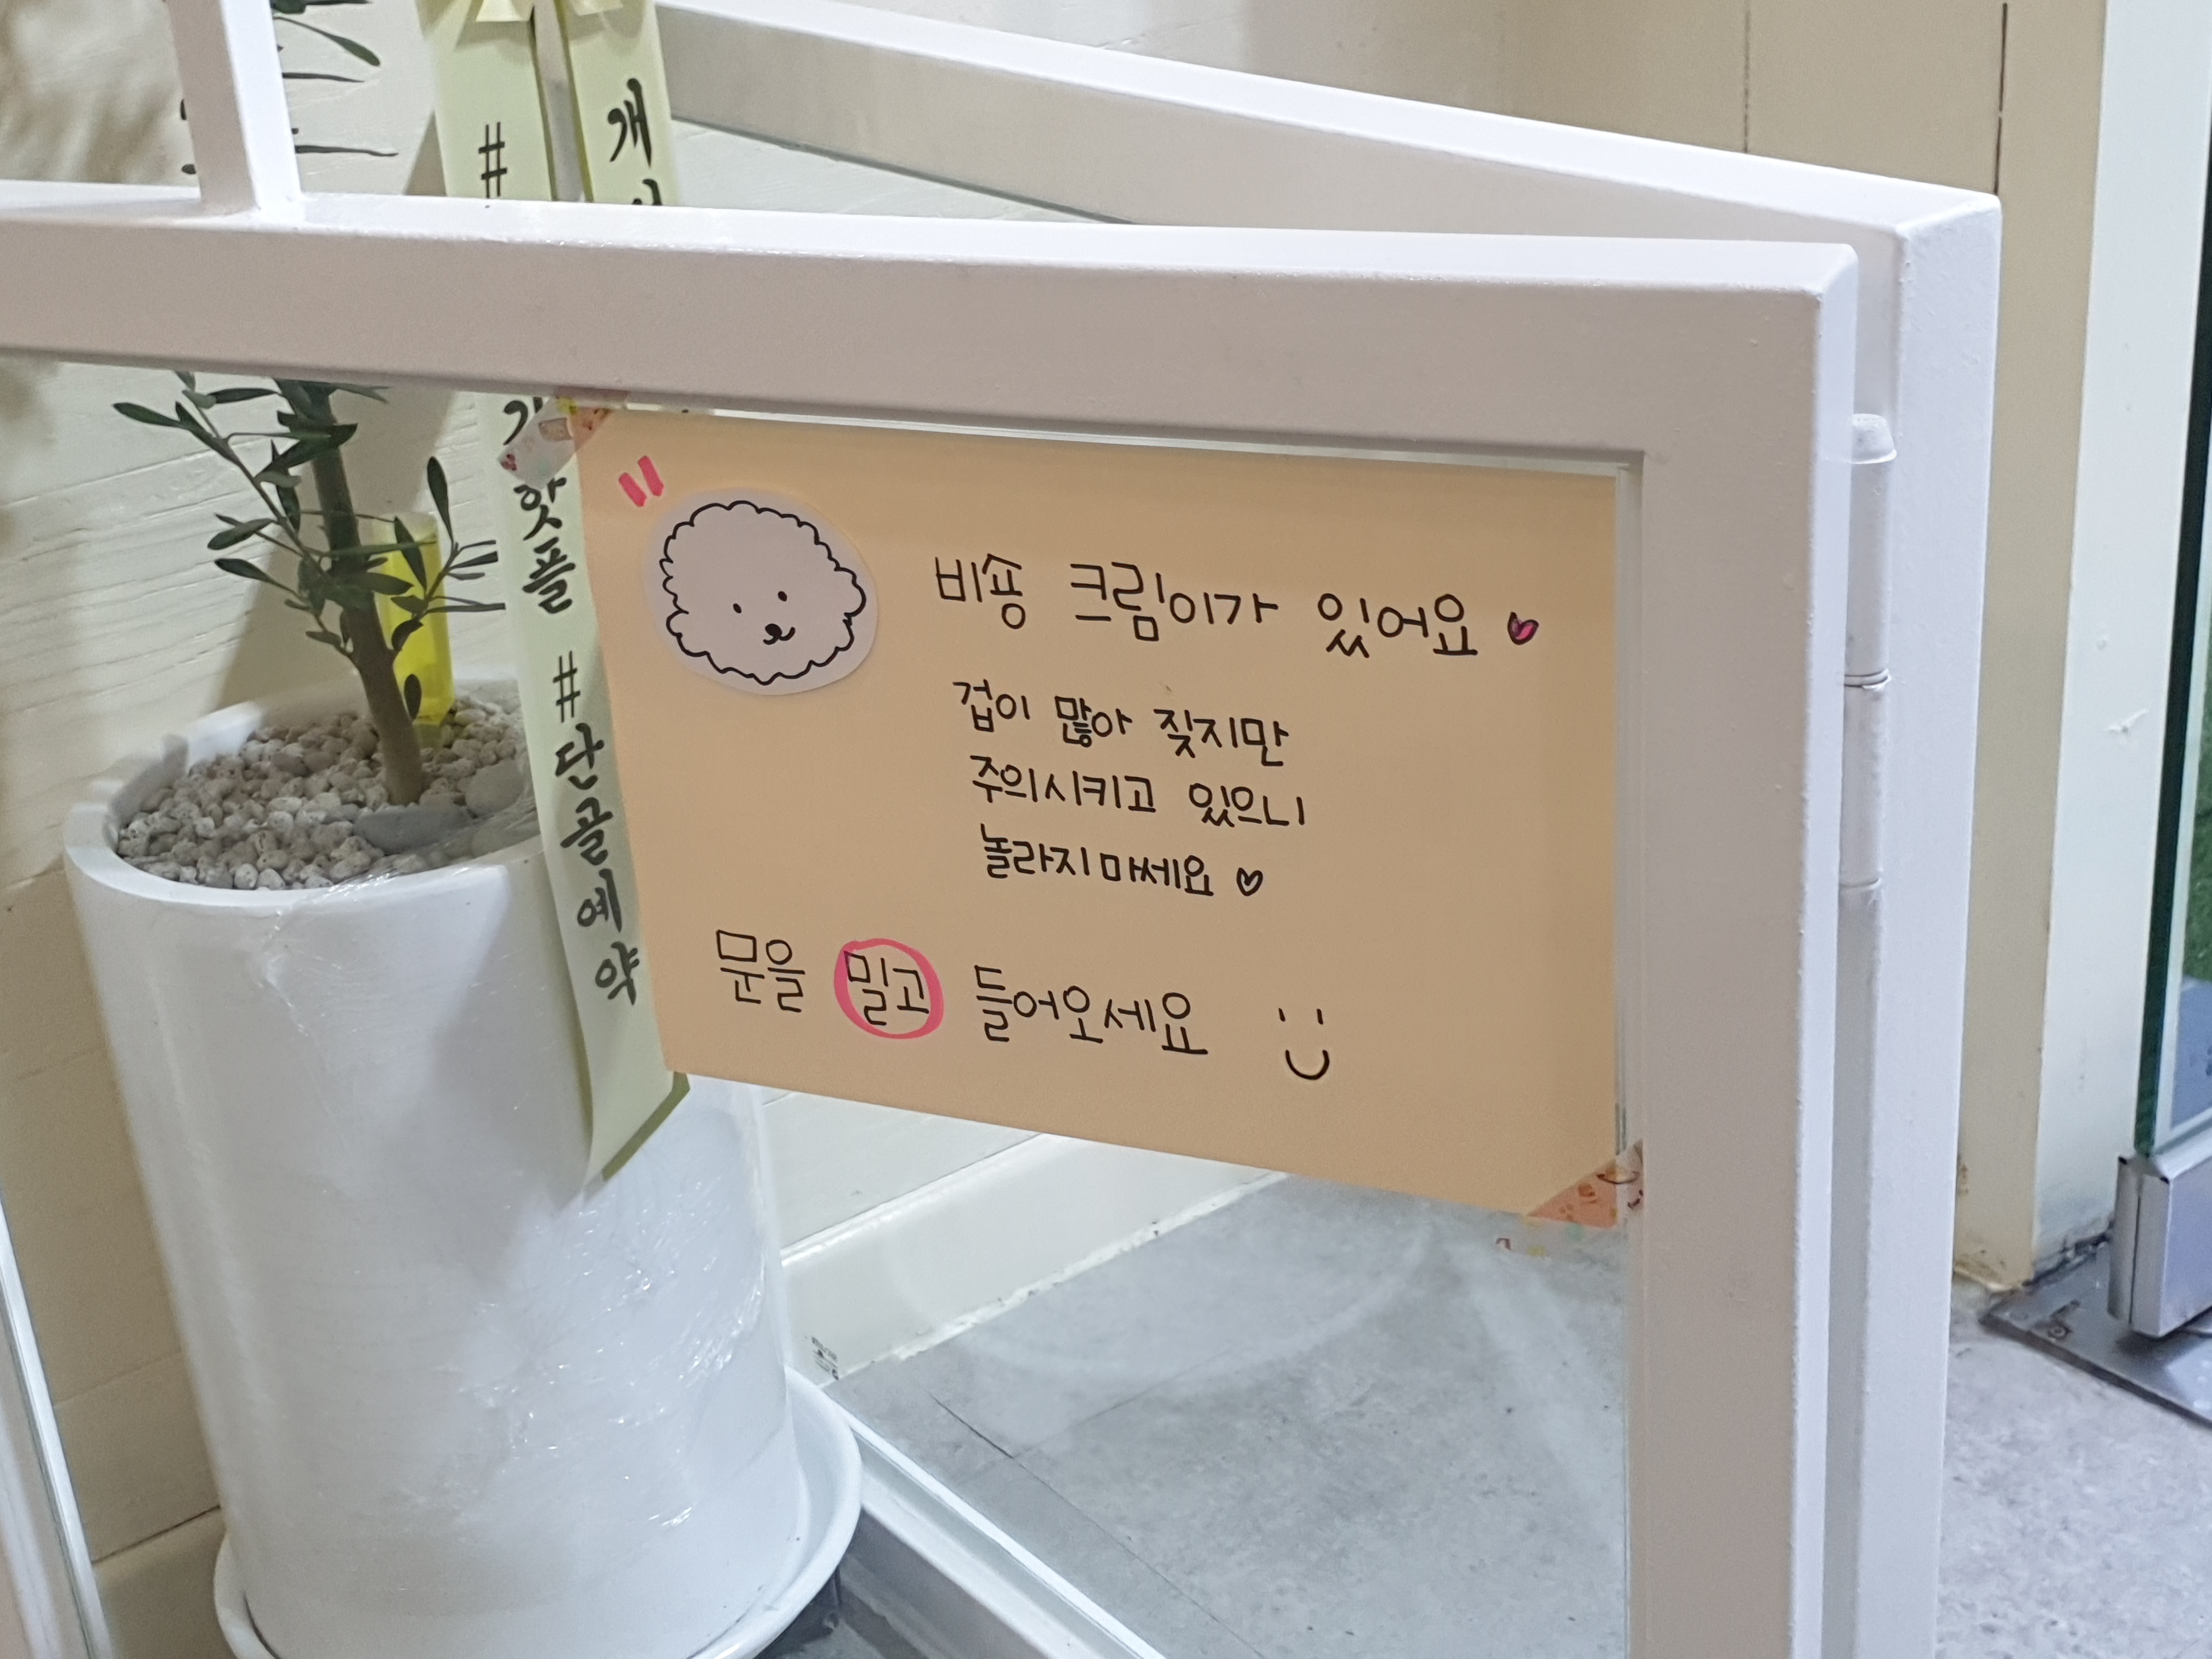 비숑 크림이가 있어요
겁이 많아 짖지만
주의시키고 있으니
놀라지 마세요
문을 밀고 들어오세요
#
핫플 #단골예약
개